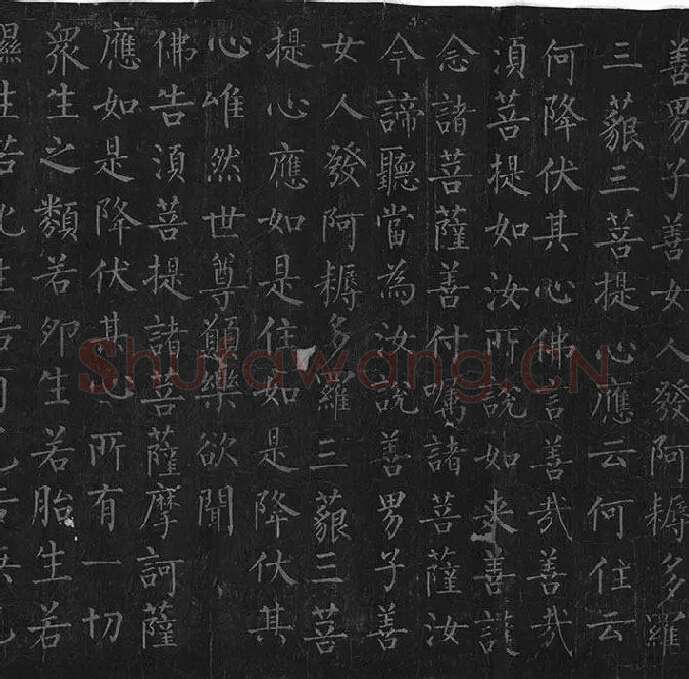 善男子善女人發阿耨多羅
三藐三菩提心應云何住云
何降伏其心佛言善哉善哉
須菩提如汝所說如来善護
念諸菩薩善付囑諸菩薩汝
今諦聽當為汝說善男子善
女人發阿耨多羅三藐三菩
提心應如是住如是降伏其
心唯然世尊願樂欲聞
佛告須菩提諸菩薩摩訶薩
應如是降伏其心所有一切
衆生之類若卵生若胎生若
Shufawang.CN